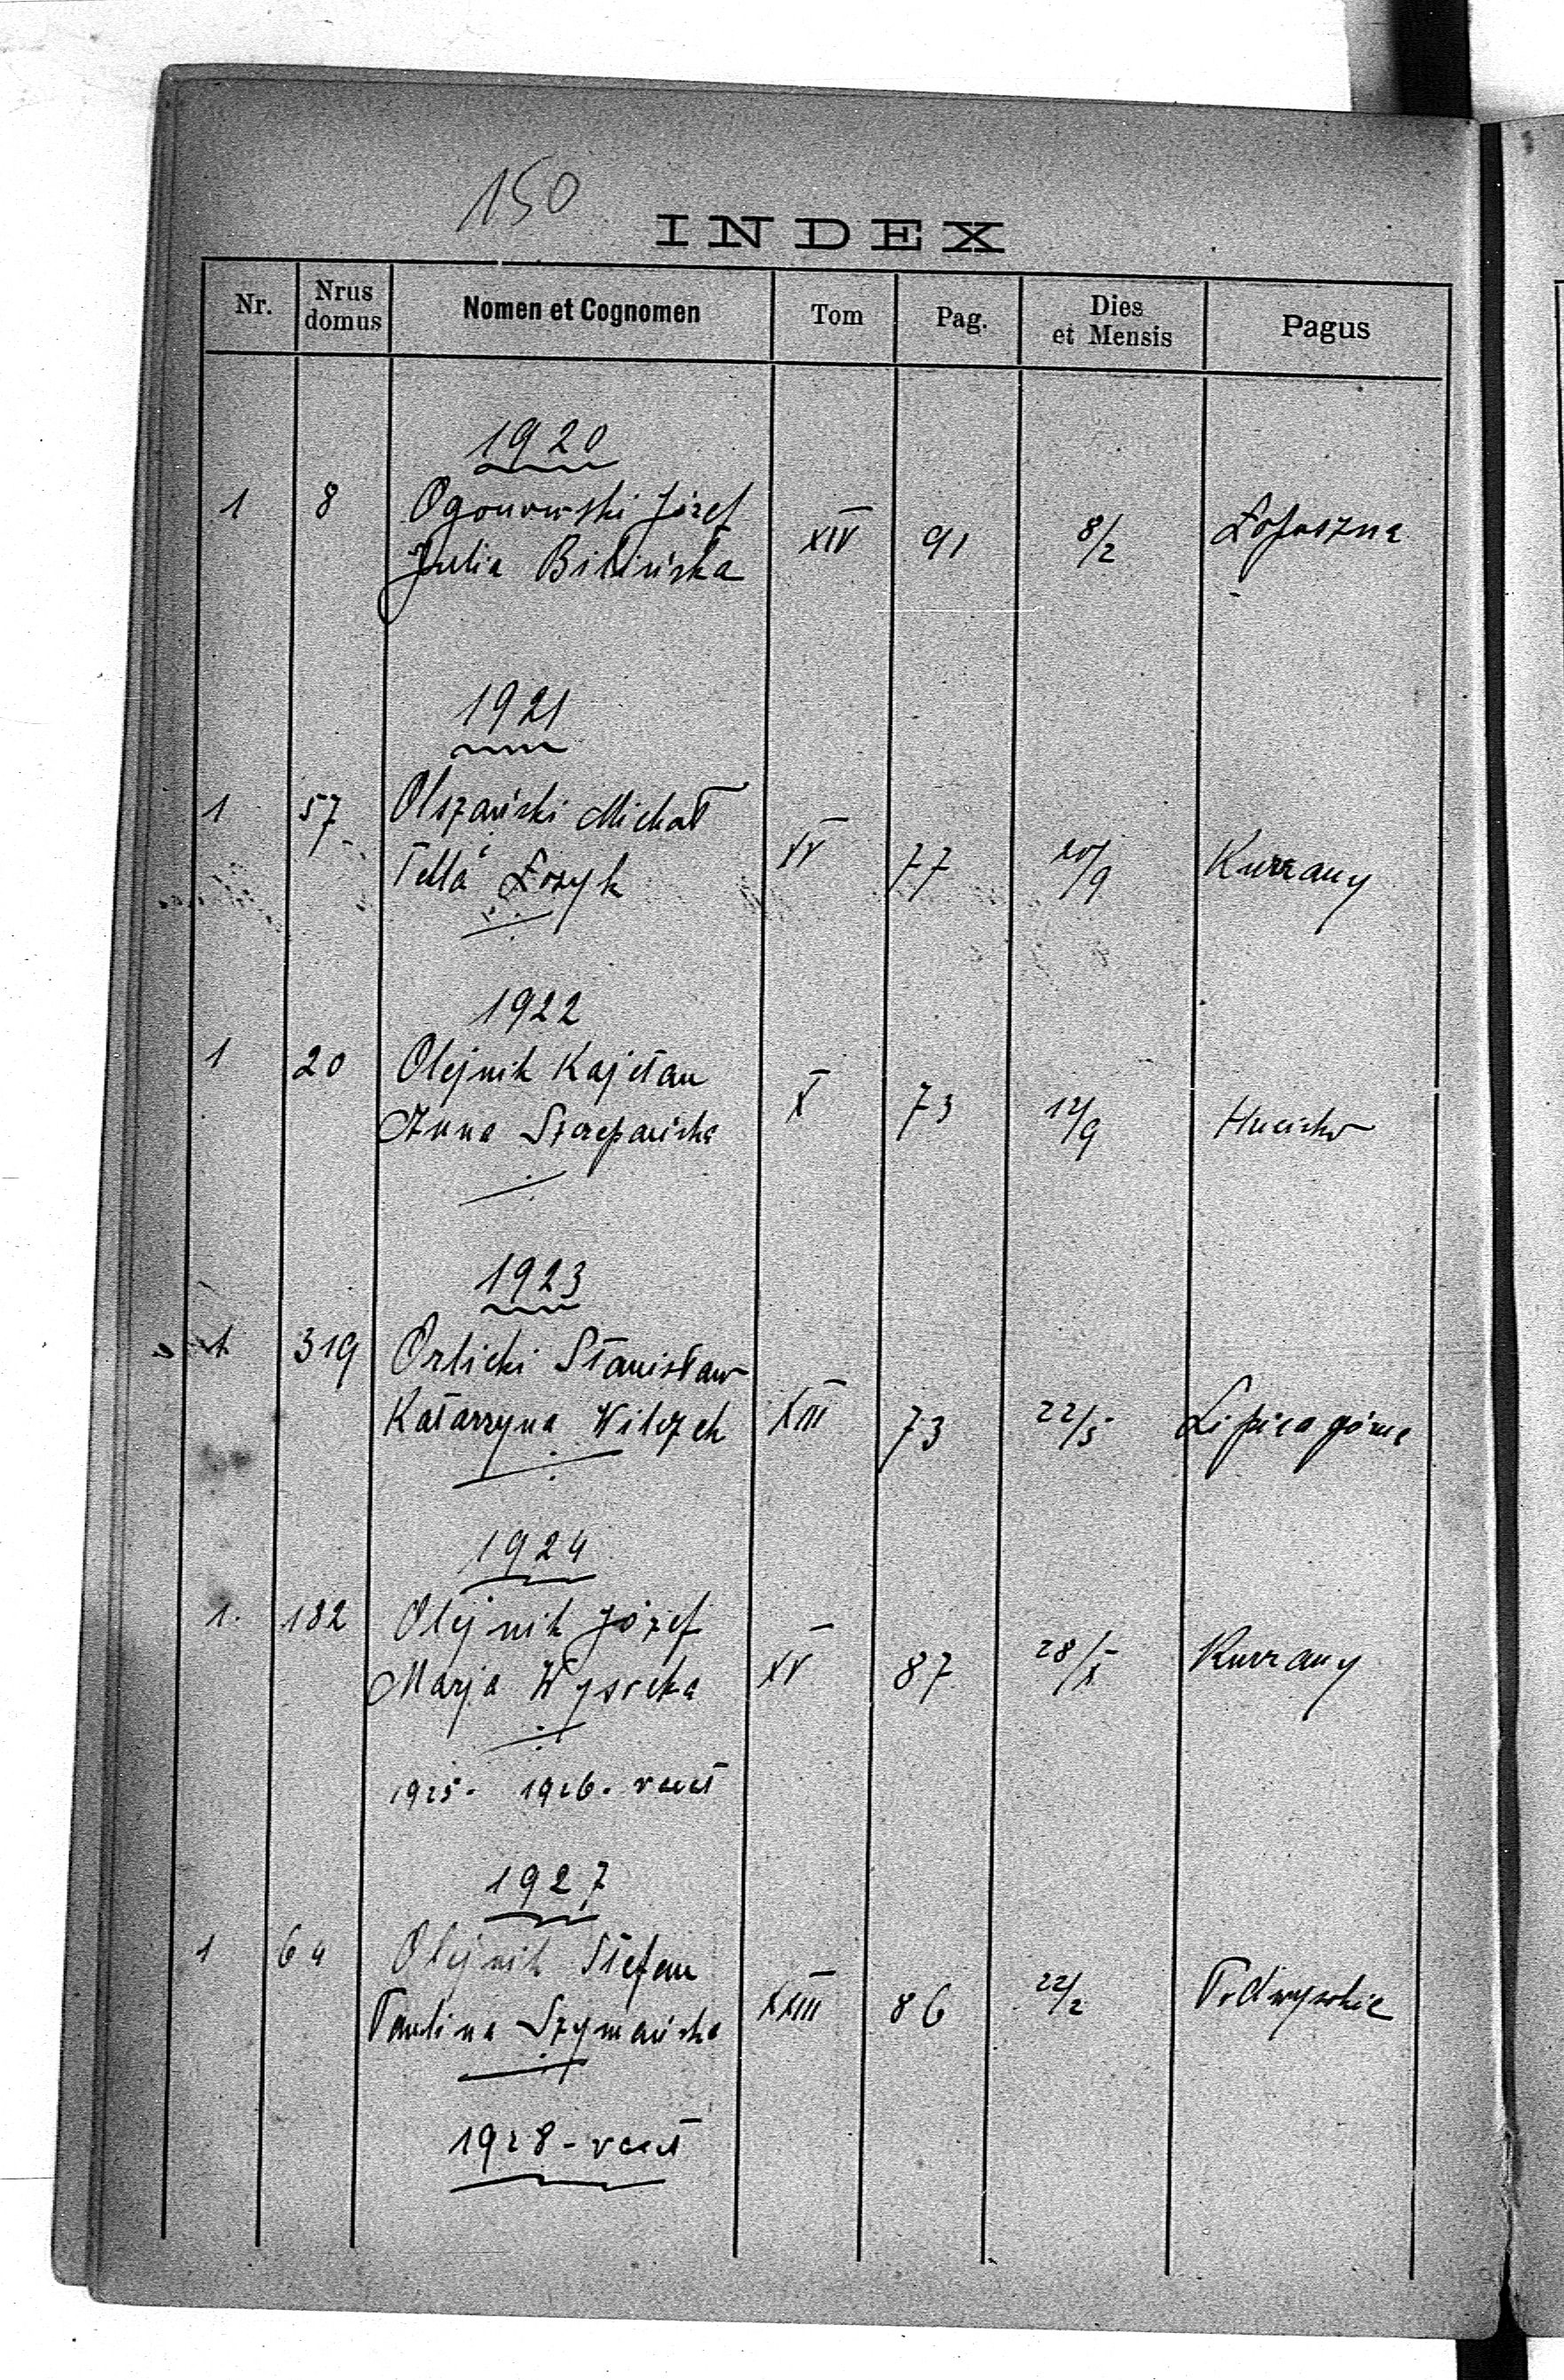 150
INDEX
Nr. Nrus domus Nomen et Cognomen Tom Pag. Dies et Mensis Pagus
1920
1 8 Ogonowski Józef
Julia Bilińska XIV 91 8/2 Łopuszna
1921
1 57 Olszański Michał
Tekla Łozyk XV 77 20/9 Kurzany
1922
1 20 Olejnik Kajetan
Anna Szczepańska X 73 12/9 Hucisko
1923
1 319 Orlicki Stanisław
Katarzyna Wilczek XIII 73 22/5 Lipica górna
1924
1. 182 Olejnik Józef
Marja Wysocka XV 87 28/X Kurzany
1925 - 1926 - vacat
1927
1 64 Olejnik Stefan
Paulina Szymańska XXIII 86 22/2 Podwysokie
1928 - vacat